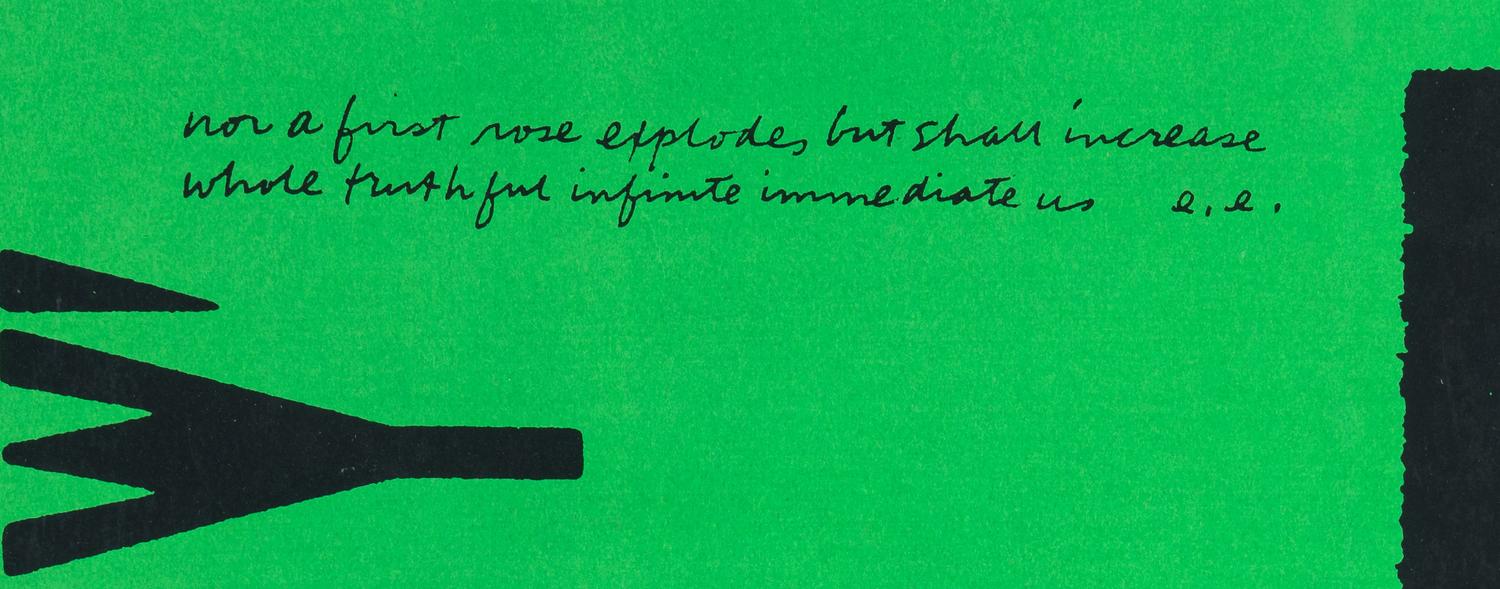 nor a first rose explodes but shall increase
whole truthful infinite immediate us e.e.